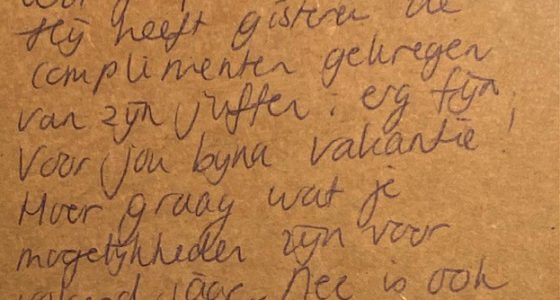 Hij heeft gisteren de
complimenten gekregen
van zijn juffen, erg fijn,
Voor jou bijna vakantie!
Hoor graag wat je
mogelijkheden zijn voor
volgend jaar. Nee is ook